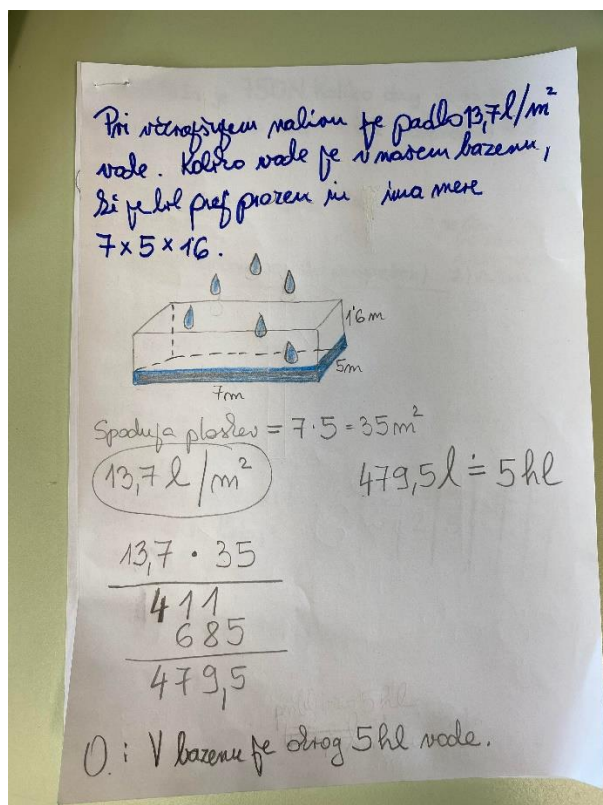 Pri včerajšnjem nalivu je padlo 13,7 l/m²
vode. Koliko vode je v našem bazenu,
če je bil prej prazen in ima mere
7 x 5 x 16.
1'6 m
5m
7m
Spodnja ploskev = 7 · 5 = 35 m²
13,7 l / m²
479,5 l ≐ 5 hl
13,7 · 35
411
685
479,5
O. : V bazenu je okrog 5 hl vode.